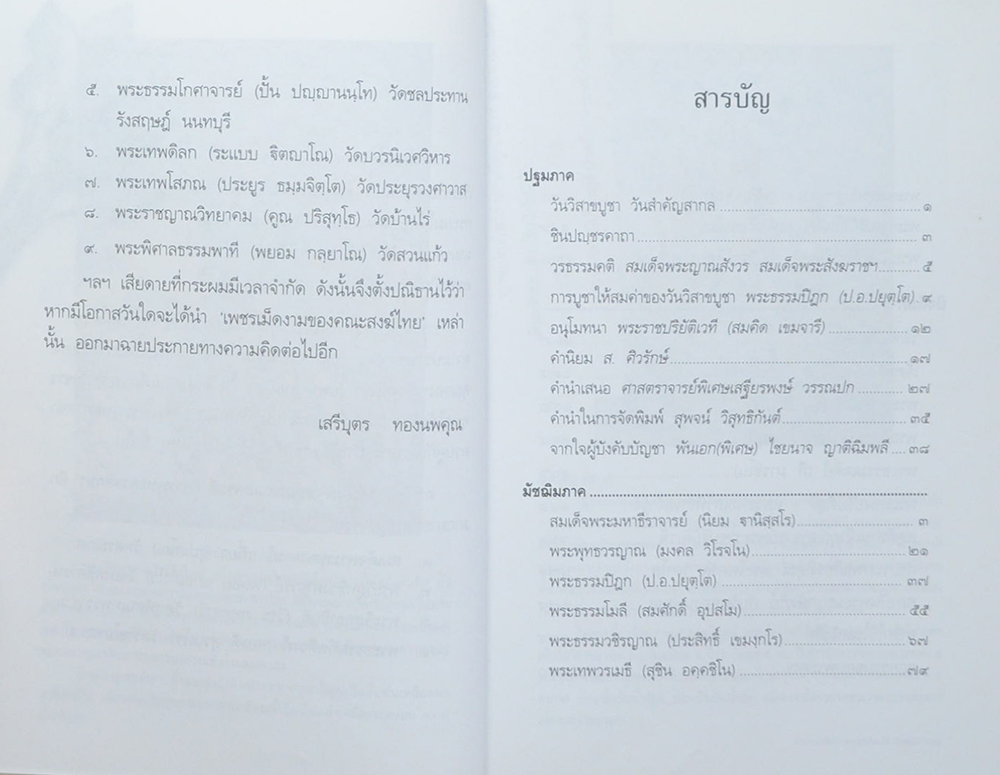 ๕. พระธรรมโกศาจารย์ (ปั้น ปญฺญานนฺโท) วัดชลประทาน
รังสฤษฎ์ นนทบุรี
๖. พระเทพดิลก (ระแบบ ฐิตญาโณ) วัดบวรนิเวศวิหาร
๗. พระเทพโสภณ (ประยูร ธมฺมจิตฺโต) วัดประยุรวงศาวาส
๘. พระราชญาณวิทยาคม (คูณ ปริสุทฺโธ) วัดบ้านไร่
๙. พระพิศาลธรรมพาที (พยอม กลฺยาโณ) วัดสวนแก้ว
ฯลฯ เสียดายที่กระผมมีเวลาจำกัด ดังนั้นจึงตั้งปณิธานไว้ว่า
หากมีโอกาสวันใดจะได้นำ 'เพชรเม็ดงามของคณะสงฆ์ไทย' เหล่า
นั้น ออกมาฉายประกายทางความคิดต่อไปอีก
เสรีบุตร ทองนพคุณ
สารบัญ
ปฐมภาค
วันวิสาขบูชา วันสำคัญสากล ๑
ชินปญฺชรคาถา ๓
วรธรรมคติ สมเด็จพระญาณสังวร สมเด็จพระสังฆราชฯ ๕
การบูชาให้สมค่าของวันวิสาขบูชา พระธรรมปิฎก (ป.อ.ปยุตฺโต) ๙
อนุโมทนา พระราชปริยัติเวที (สมคิด เขมจารี) ๑๒
คำนิยม ส. ศิวรักษ์ ๑๗
คำนำเสนอ ศาสตราจารย์พิเศษเสฐียรพงษ์ วรรณปก ๒๗
คำนำในการจัดพิมพ์ สุพจน์ วิสุทธิกันต์ ๓๕
จากใจผู้บังคับบัญชา พันเอก(พิเศษ) ไชยนาจ ญาติฉิมพลี ๓๘
มัชฌิมภาค
สมเด็จพระมหาธีราจารย์ (นิยม ฐานิสฺสโร) ๓
พระพุทธวรญาณ (มงคล วิโรจโน) ๒๑
พระธรรมปิฎก (ป.อ.ปยุตฺโต) ๓๗
พระธรรมโมลี (สมศักดิ์ อุปสโม) ๕๕
พระธรรมวชิรญาณ (ประสิทธิ์ เขมงฺกโร) ๖๗
พระเทพวรเมธี (สุชิน อคฺคชิโน) ๗๙